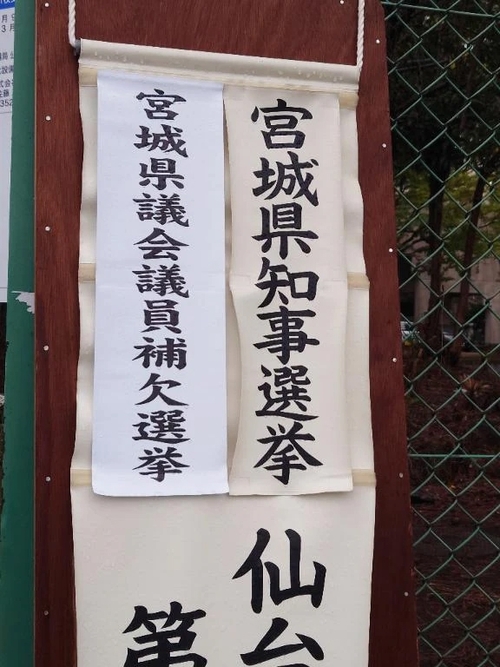 宮城県知事選挙
宮城県議会議員補欠選挙
仙台
第